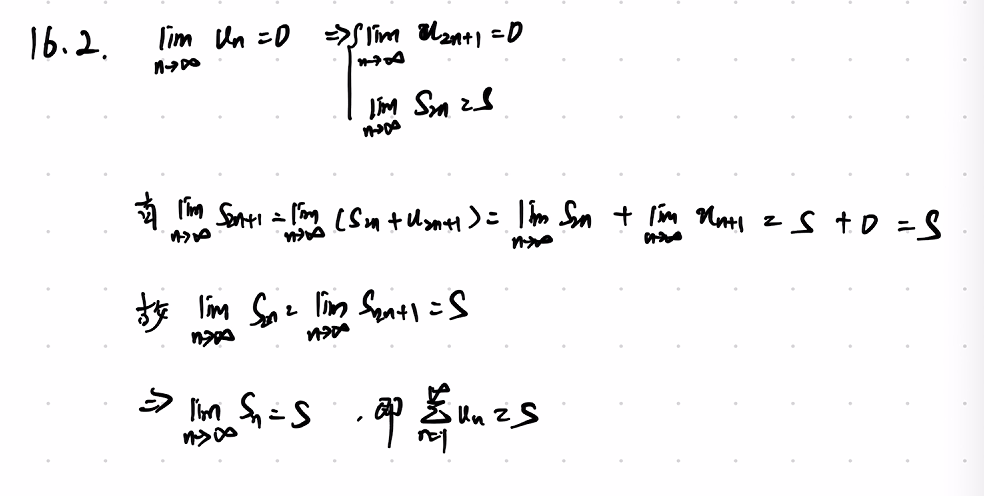 16.2. lim_{n→∞} u_n = 0 ⇒ { lim_{n→∞} u_{2n+1} = 0
lim_{n→∞} S_{2n} = S
有 lim_{n→∞} S_{2n+1} = lim_{n→∞} (S_{2n} + u_{2n+1}) = lim_{n→∞} S_{2n} + lim_{n→∞} u_{n+1} = S + 0 = S
故 lim_{n→∞} S_{2n} = lim_{n→∞} S_{2n+1} = S
⇒ lim_{n→∞} S_n = S . 即 ∑_{n=1}^{∞} u_n = S